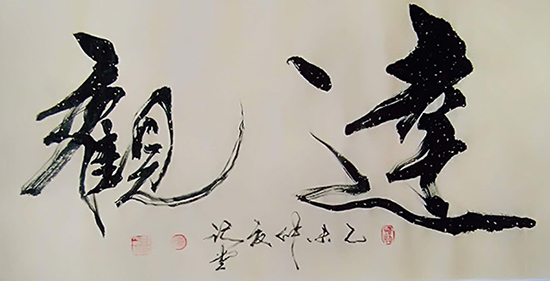 達觀
乙未仲夏